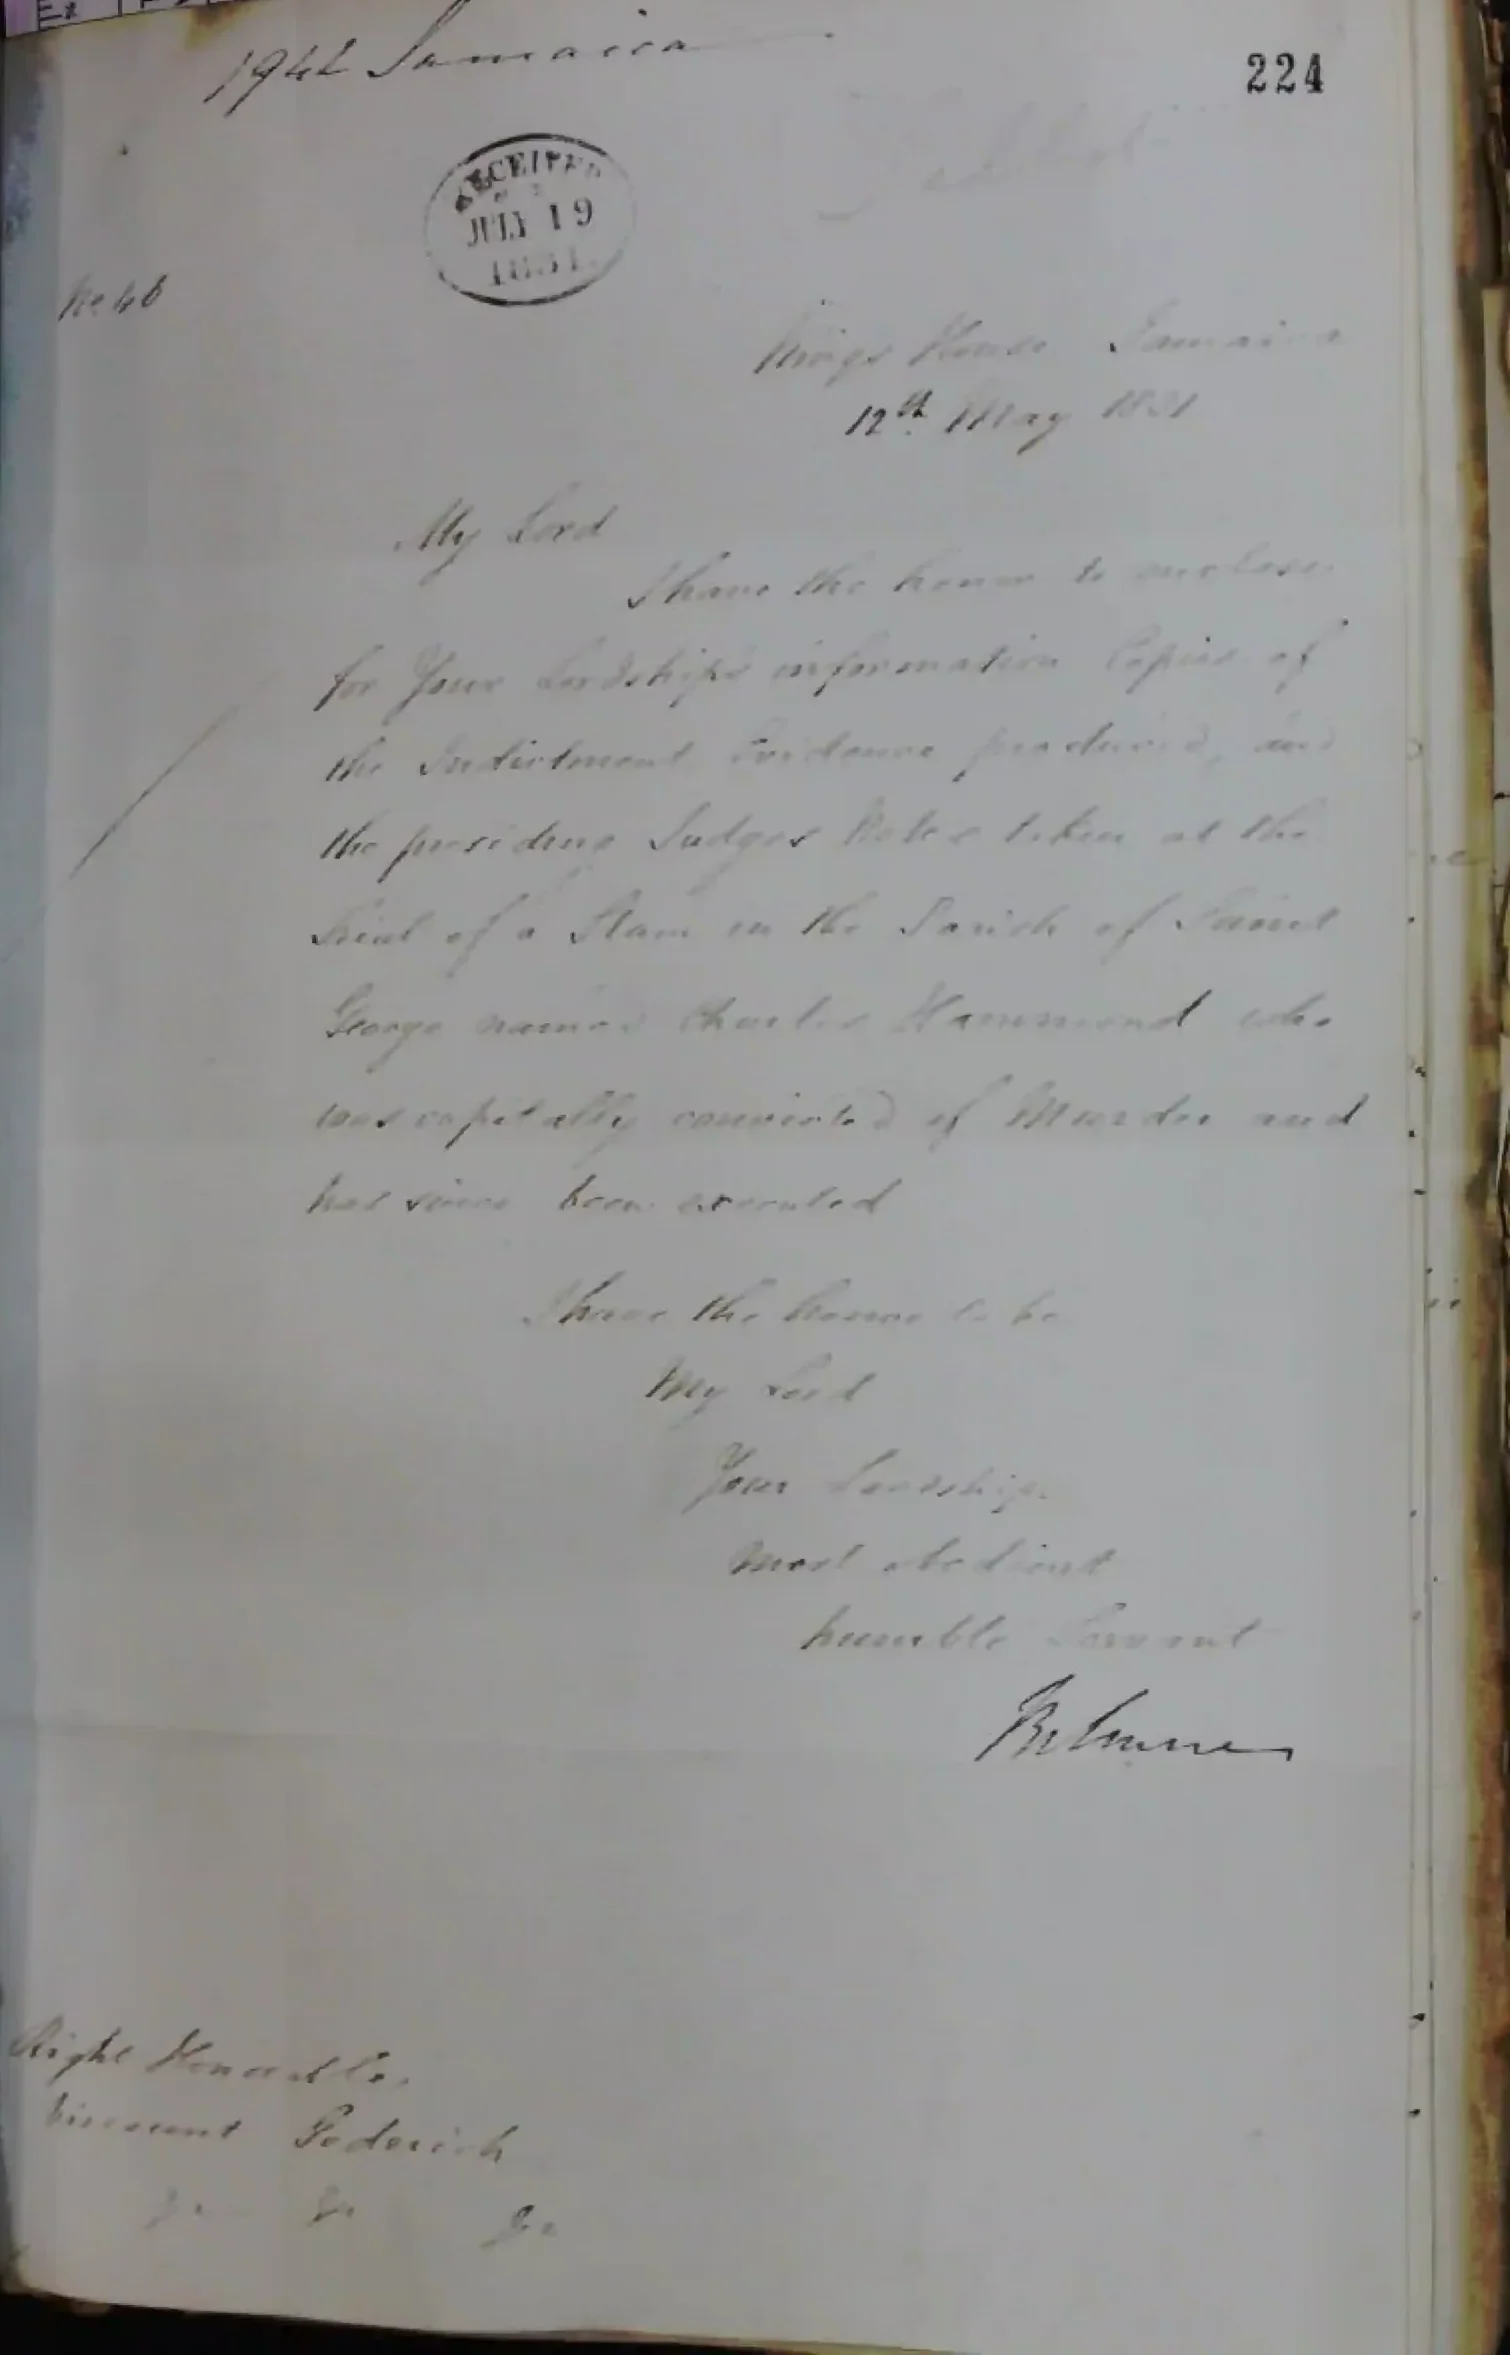 1942 Jamaica
224
RECEIVED
JULY 19
1831
No 46
Kings House Jamaica
12th May 1831
My Lord
I have the honor to enclose
for Your Lordship's information Copies of
the Indictment Evidence produced, and
the presiding Judges Notes taken at the
Trial of a Slave in the Parish of Saint
George named Charles Hammond who
was capitally convicted of Murder and
has since been executed
I have the honor to be
My Lord
Your Lordships
most obedient
humble Servant
Belmore
Right Honorable
Viscount Goderich
&c &c &c